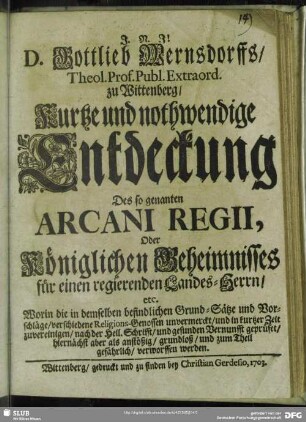 J. N. J!
D. Gottlieb Wernsdorffs/
Theol. Prof. Publ. Extraord.
zu Wittenberg/
Kurtze und nothwendige
Entdeckung
Des so genanten
ARCANI REGII,
Oder
Königlichen Geheimnisses
für einen regierenden Landes-Herrn/
etc.
Worin die in demselben befindlichen Grund-Sätze und Vor-
schläge/verschiedene Religions-Genossen unvermerckt/und in kurtzer Zeit
zuvereinigen/ nach der Heil. Schrifft/ und gesunden Vernunfft geprüfet/
hiernächst aber als anstößig/ grundloß/ und zum Theil
gefährlich/ verworffen werden.
Wittenberg/ gedruckt und zu finden bey Christian Gerdesio, 1703.
SLUB